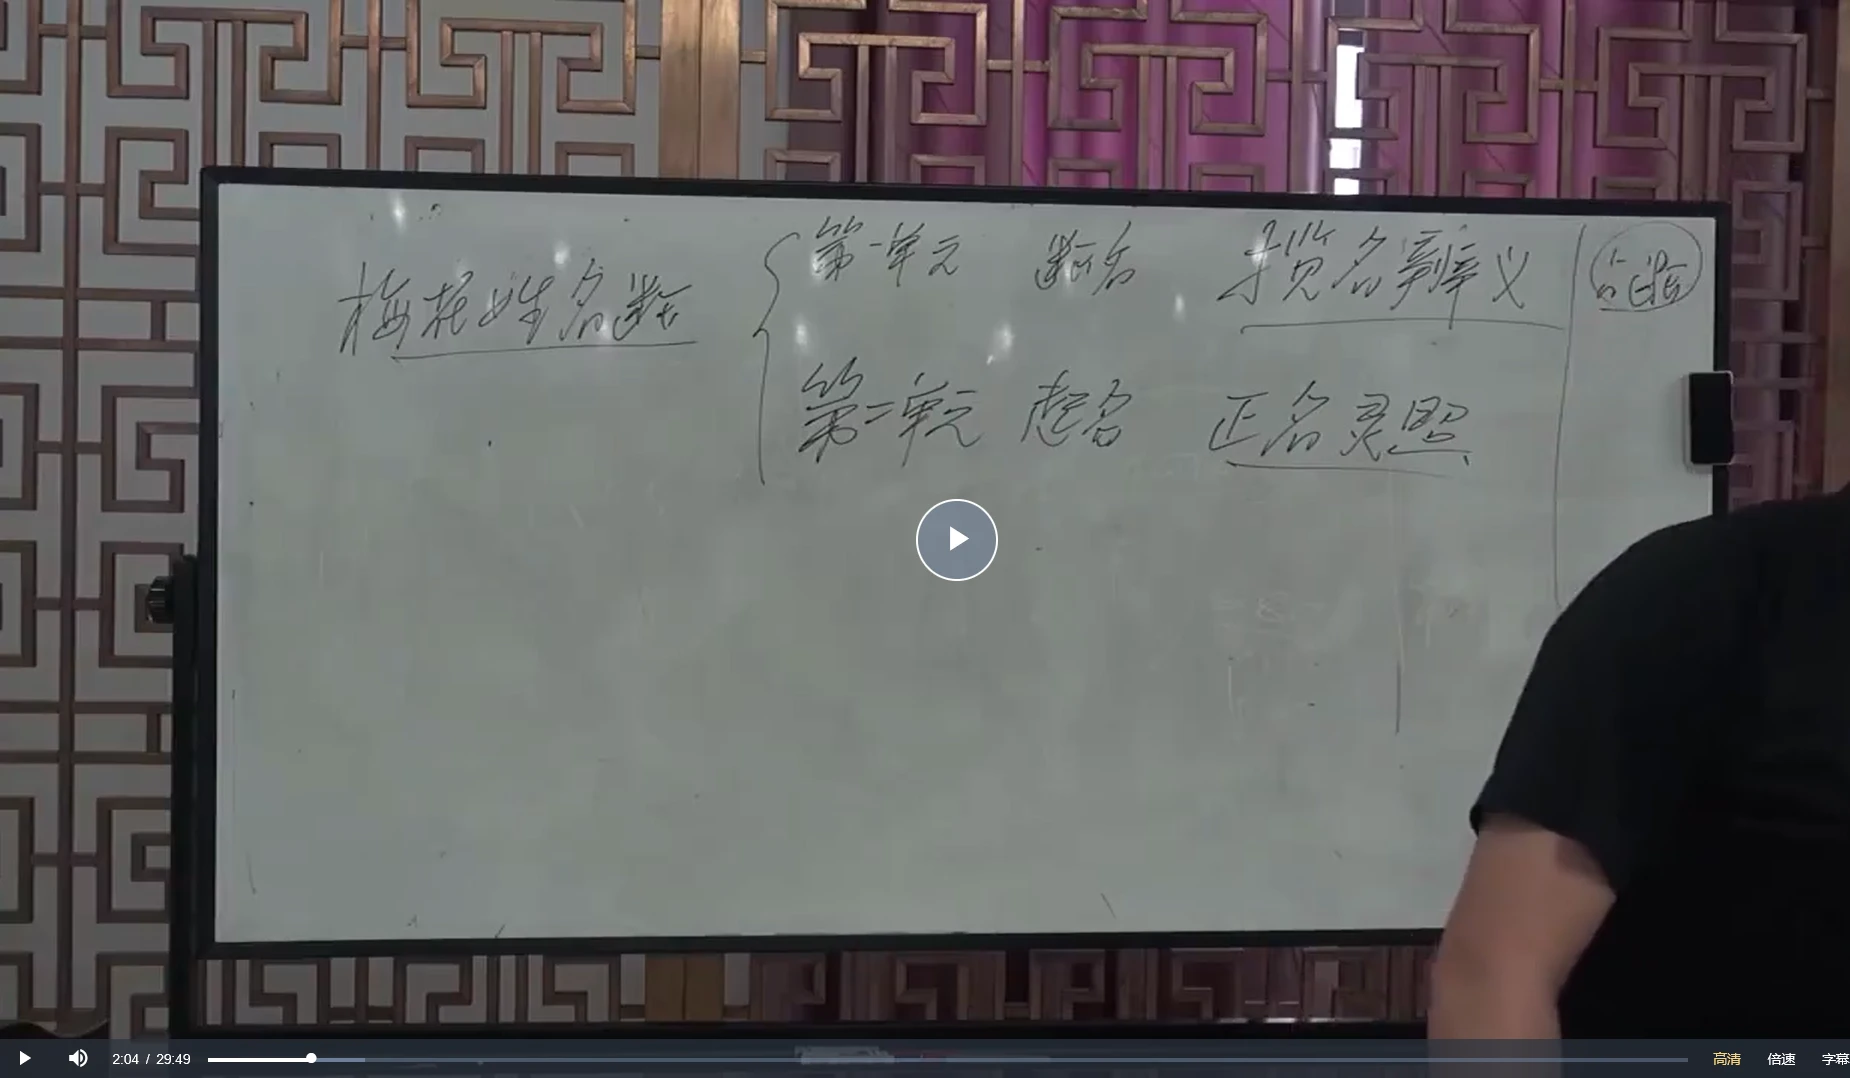 梅花姓名断
第一单元 断名 揽名辨义
第二单元 起名 正名灵照
2:04 / 29:49
高清 倍速 字幕